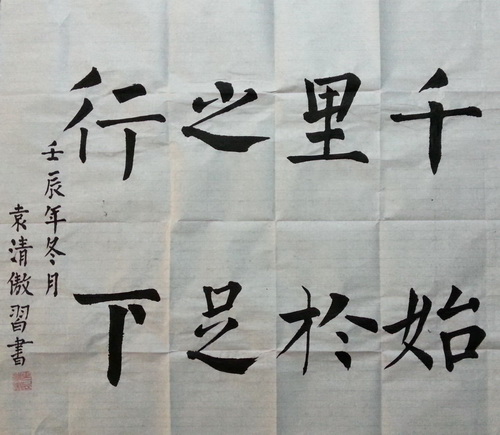 千里之行
始於足下
壬辰年冬月
袁清傲習書